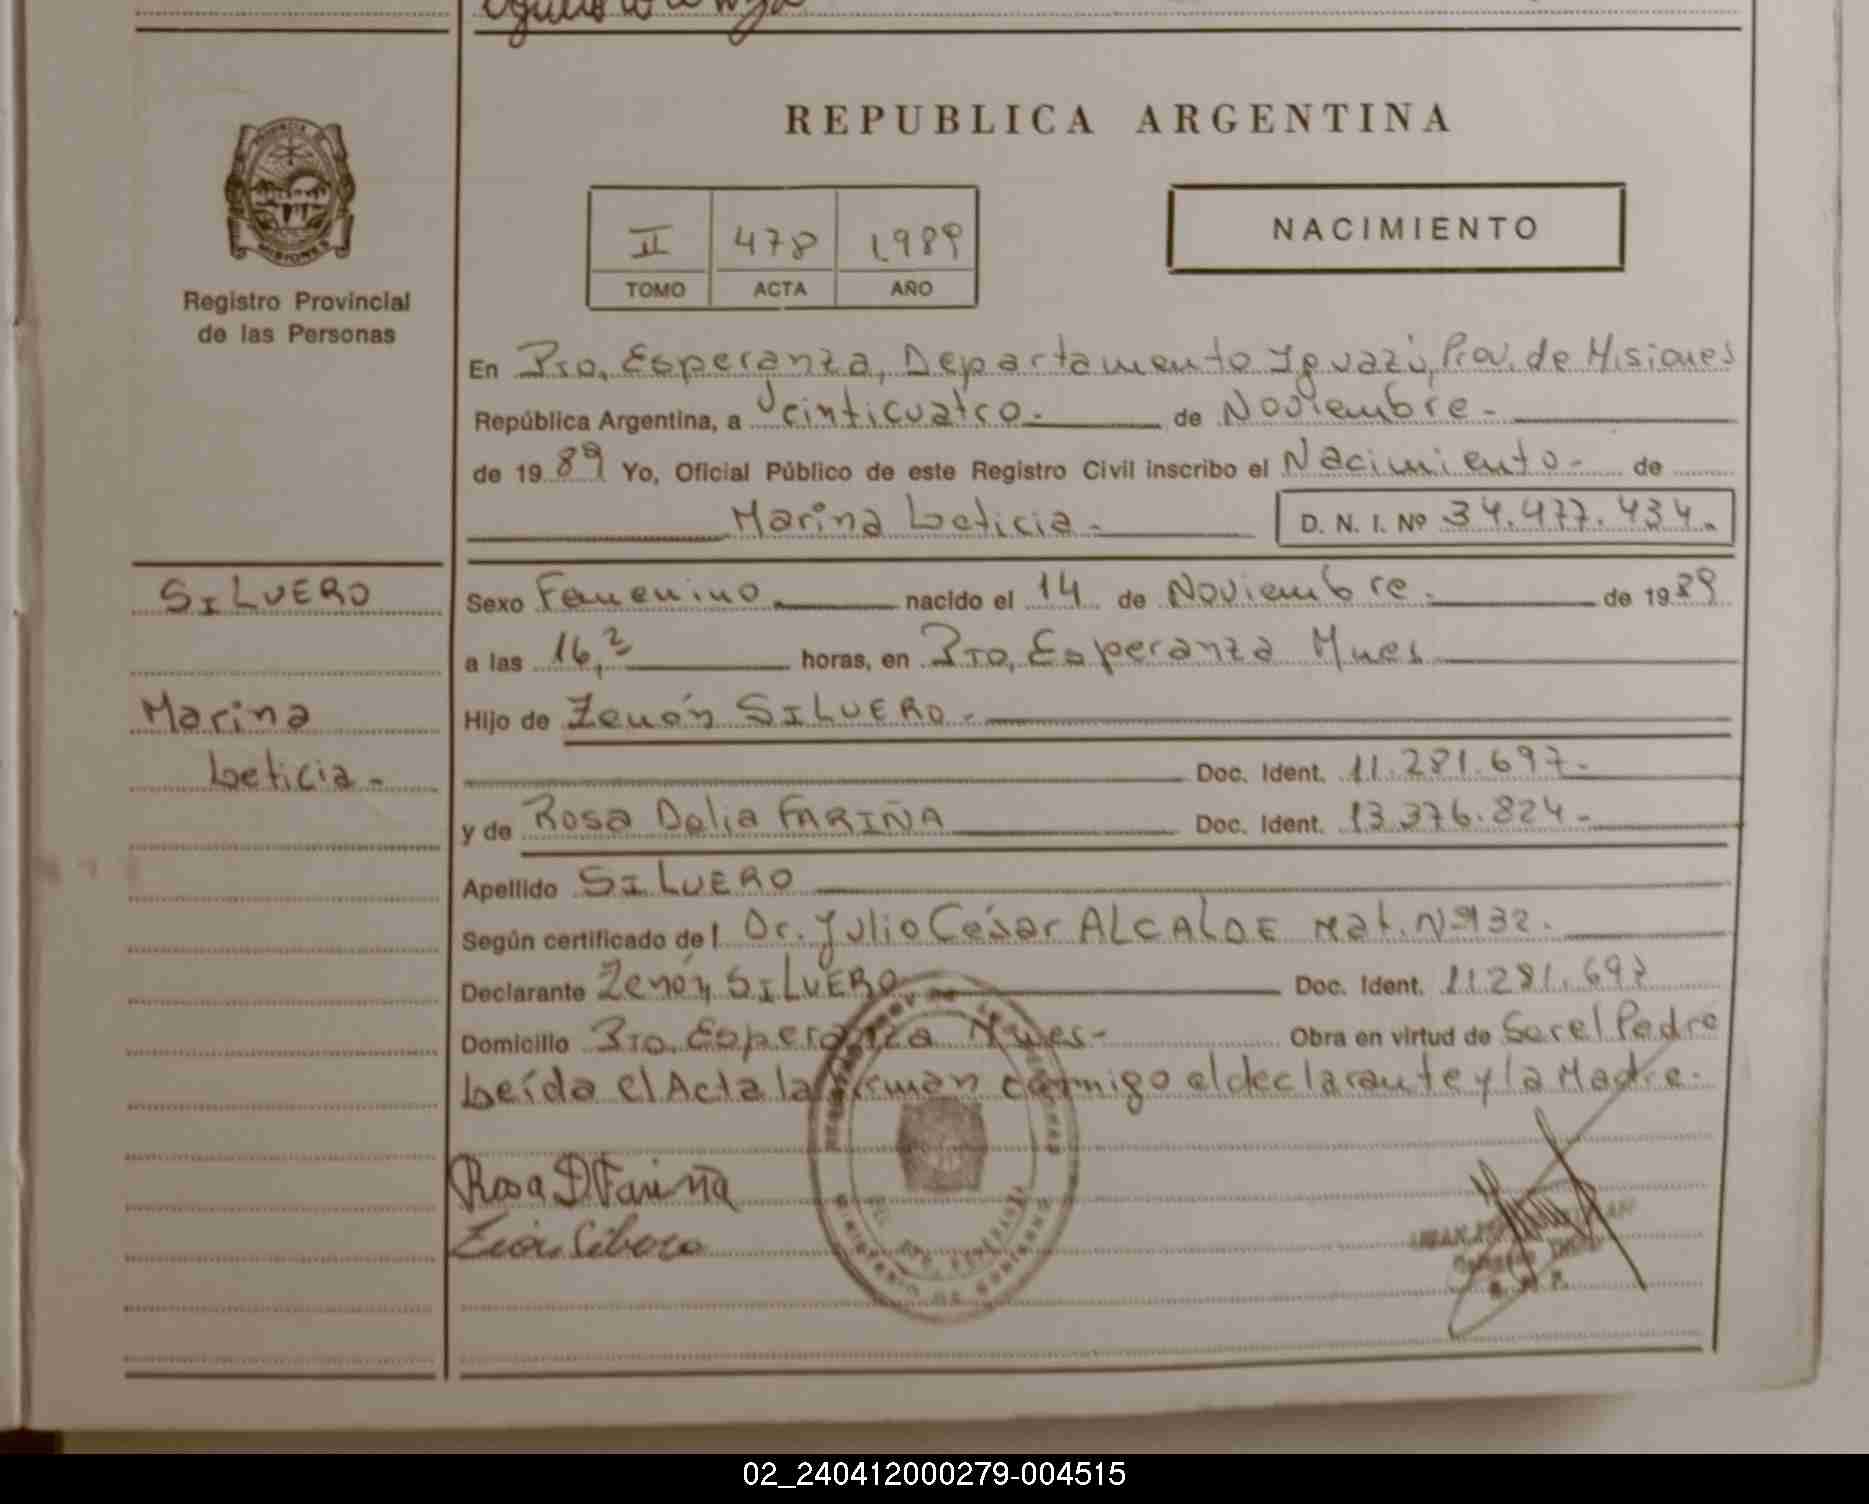 REPUBLICA ARGENTINA
II 478 1989
TOMO ACTA AÑO
NACIMIENTO
Registro Provincial
de las Personas
En Pto, Esperanza, Departamento Iguazú, Prov. de Misiones
República Argentina, a Veinticuatro.- de Noviembre.-
de 1989 Yo, Oficial Público de este Registro Civil inscribo el Nacimiento- de
Marina Leticia.- D. N. I. Nº 34.477.434.
SILVERO
Marina
Leticia.-
Sexo Femenino nacido el 14 de Noviembre.- de 1989
a las 16, horas, en Pto, Esperanza Mnes
Hijo de Zenón SILVERO.-
Doc. Ident. 11.281.697.-
y de Rosa Delia FARIÑA Doc. Ident. 13.376.824-
Apellido SILVERO
Según certificado del Dr. Julio César ALCALDE Mat. Nº 932.
Declarante Zenón SILVERO Doc. Ident. 11281.697
Domicilio Pto, Esperanza Mnes- Obra en virtud de Ser el Padre
Leída el Acta la firman conmigo el declarante y la Madre.
Rosa D. Fariña
02_240412000279-004515